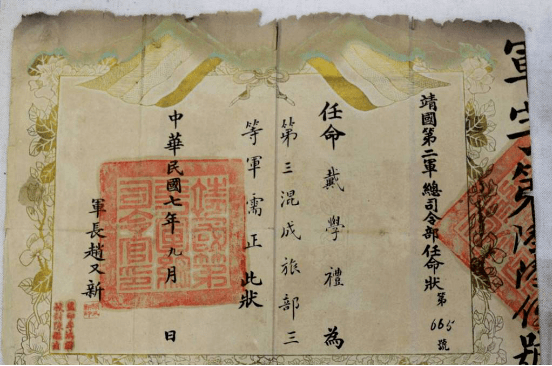 軍字第陸陸伍號
靖國第二軍總司令部任命狀第665號
任命戴學禮為
第三混成旅部三
等軍需正此狀
中華民國七年九月 日
軍長趙又新
靖國第